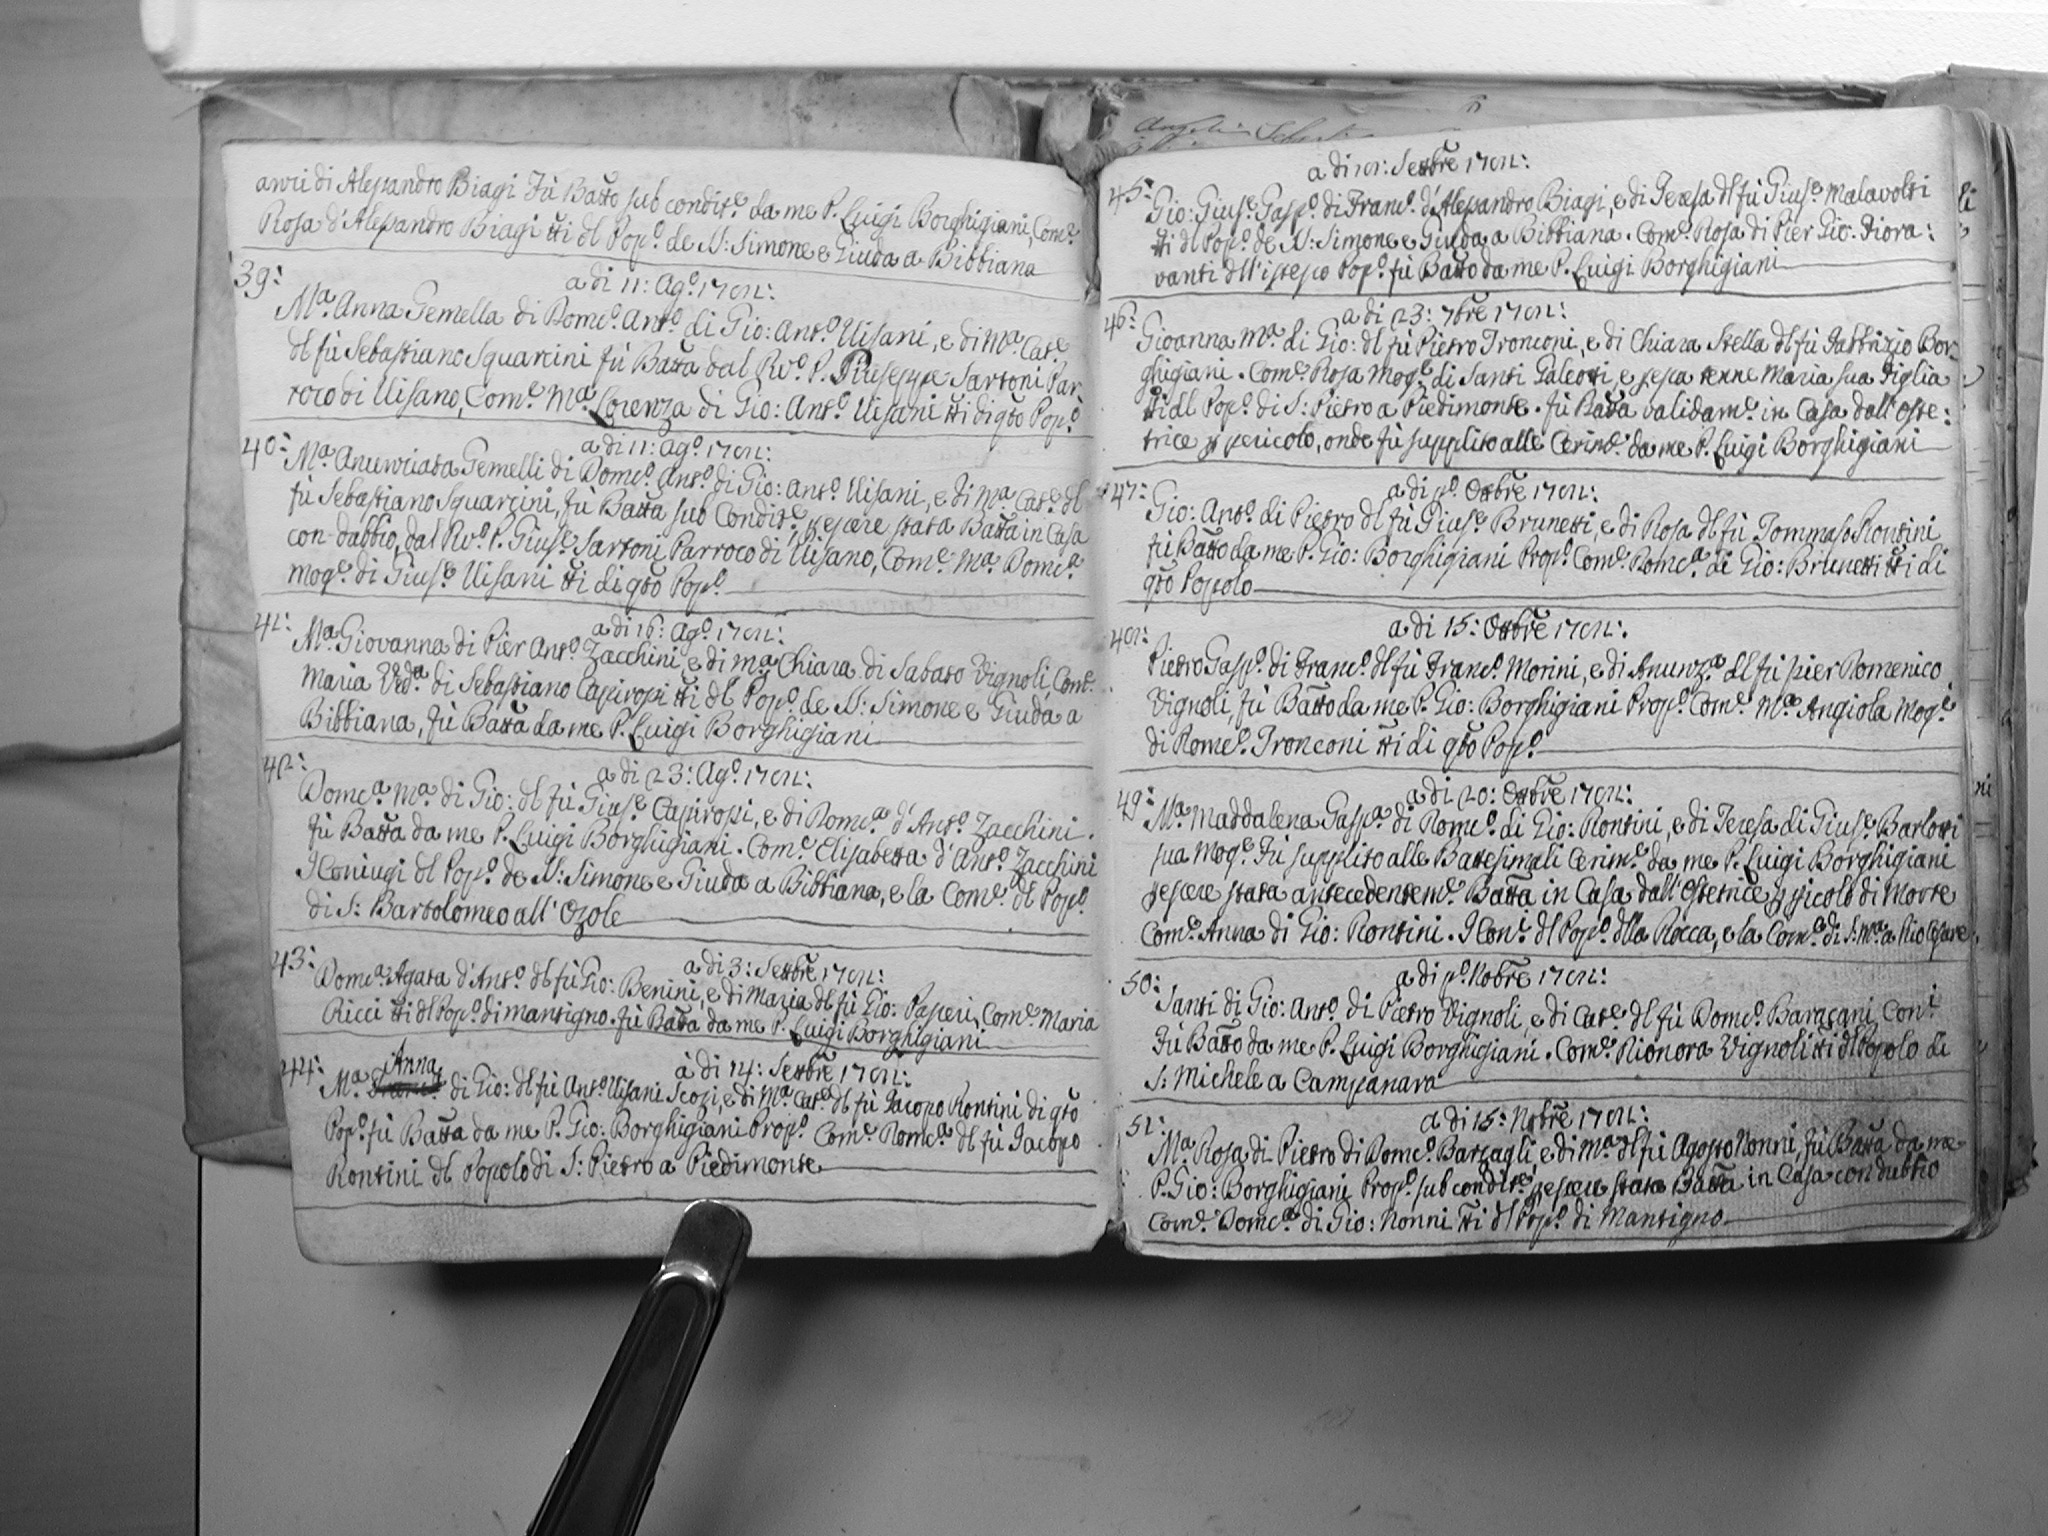 anni di Alessandro Biagi Fù Batto sub condit.e da me P. Luigi Borghigiani, Com.e
Rosa d'Alessandro Biagi tti dl Pop.o de SS: Simone e Giuda a Bibbiana
39: a di 11: Ag.o 1782:
M.a Anna Gemella di Dom.co Ant.o di Gio: Ant.o Visani, e di M.a Cat.a
dl fù Sebastiano Squarcini fù Batta dal Rv.o P. Giuseppe Sartoni Par:
roco di Visano, Com.e M.a Lorenza di Gio: Ant.o Visani tti di qto Pop.o
40: a di 11: Ag.o 1782:
M.a Anunciata Gemelli di Dom.co Ant.o di Gio: Ant.o Visani, e di M.a Cat.a dl
fù Sebastiano Squarcini, fù Batta sub Condit.e p essere stata Batta in Casa
con dubbio, dal Rv.o P. Gius.e Sartoni Parroco di Visano, Com.e M.a Dom.ca
Mog.e di Gius.e Visani tti di qto Pop.o
41: a di 16: Ag.o 1782:
M.a Giovanna di Pier Ant.o Zacchini, e di M.a Chiara di Sabato Vignoli, Com.e
Maria Ved.a di Sebastiano Capirossi tti dl Pop.o de SS: Simone e Giuda a
Bibbiana, fù Batta da me P. Luigi Borghigiani
42: a di 23: Ag.o 1782:
Dom.ca M.a di Gio: dl fù Gius.e Capirossi, e di Dom.ca d'Ant.o Zacchini.
fù Batta da me P. Luigi Borghigiani. Com.e Elisabetta d'Ant.o Zacchini
I Coniugi dl Pop.o de SS: Simone e Giuda a Bibbiana, e la Com.e dl Pop.o
di S: Bartolomeo all'Ozole
43: a di 3: Settbre 1782:
Dom.ca Agata d'Ant.o dl fù Gio: Benini, e di Maria dl fù Gio: Pasperi, Com.e Maria
Ricci tti dl Pop.o di Mantigno. fù Batta da me P. Luigi Borghigiani
44: à di 14: Settbre 1782:
Anna
M.a di Gio: dl fù Ant.o Visani Scozi, e di M.a Cat.a dl fù Jacopo Rontini di qto
Pop.o fù Batta da me P. Gio: Borghigiani Prop.o Com.e Dom.ca dl fù Jacopo
Rontini dl Popolo di S: Pietro a Piedimonte
45: a di 21: Settbre 1782:
Gio: Gius.e Gasp.o di Franc.o d'Alessandro Biagi, e di Teresa dl fù Gius.e Malavolti
tti dl Pop.o de SS: Simone e Giuda a Bibbiana. Com.e Rosa di Pier Gio. Fiora:
vanti dll'istesso Pop.o fù Batto da me P. Luigi Borghigiani
46: a di 23: 7bre 1782:
Giovanna M.a di Gio: dl fù Pietro Tronconi, e di Chiara Stella dl fù Fabbrizio Bor:
ghigiani. Com.e Rosa Mog.e di Santi Galeotti, e p essa tenne Maria sua Figlia
tti dl Pop.o di S: Pietro a Piedimonte. fù Batta validam.e in Casa dall'Oste:
trice p pericolo, onde fù supplito alle Cerim.e da me P. Luigi Borghigiani
47: a di p.o Ottbre 1782:
Gio: Ant.o di Pietro dl fù Gius.e Brunetti, e di Rosa dl fù Tommaso Rontini
fù Batto da me P. Gio: Borghigiani Prop.o Com.e Dom.ca di Gio: Brunetti tti di
qto Popolo
48: a di 15: Ottbre 1782:
Pietro Gasp.o di Franc.o dl fù Franc.o Morini, e di Anunz.a dl fù Pier Domenico
Vignoli, fù Batto da me P. Gio: Borghigiani Prop.o Com.e M.a Angiola Mog.e
di Dom.co Tronconi tti di qto Pop.o
49: a di 20: Ottbre 1782:
M.a Maddalena Gasp.a di Dom.co di Gio: Rontini, e di Teresa di Gius.e Barlotti
sua Mog.e fù supplito alle Battesimali Cerim.e da me P. Luigi Borghigiani
p essere stata antecedentem.e Batta in Casa dall'Ostetrice p pricolo di Morte
Com.e Anna di Gio: Rontini. I Con.i dl Pop.o dlla Rocca, e la Com.e di S: M.a a Rio Cesare
50: a di p.o Nobre 1782:
Santi di Gio: Ant.o di Pietro Vignoli, e di Cat.a dl fù Dom.co Baracani Con.i
fù Batto da me P. Luigi Borghigiani. Com.e Eleonora Vignoli tti dl Popolo di
S: Michele a Campanara
51: a di 15: Nobre 1782:
M.a Rosa di Pietro di Dom.co Barzagli, e di M.a dl fù Agosto Nonni, fù Batta da me
P. Gio: Borghigiani Prop.o sub condit.e p essere stata Batta in Casa con dubbio
Com.e Dom.ca di Gio: Nonni tti dl Pop.o di Mantigno